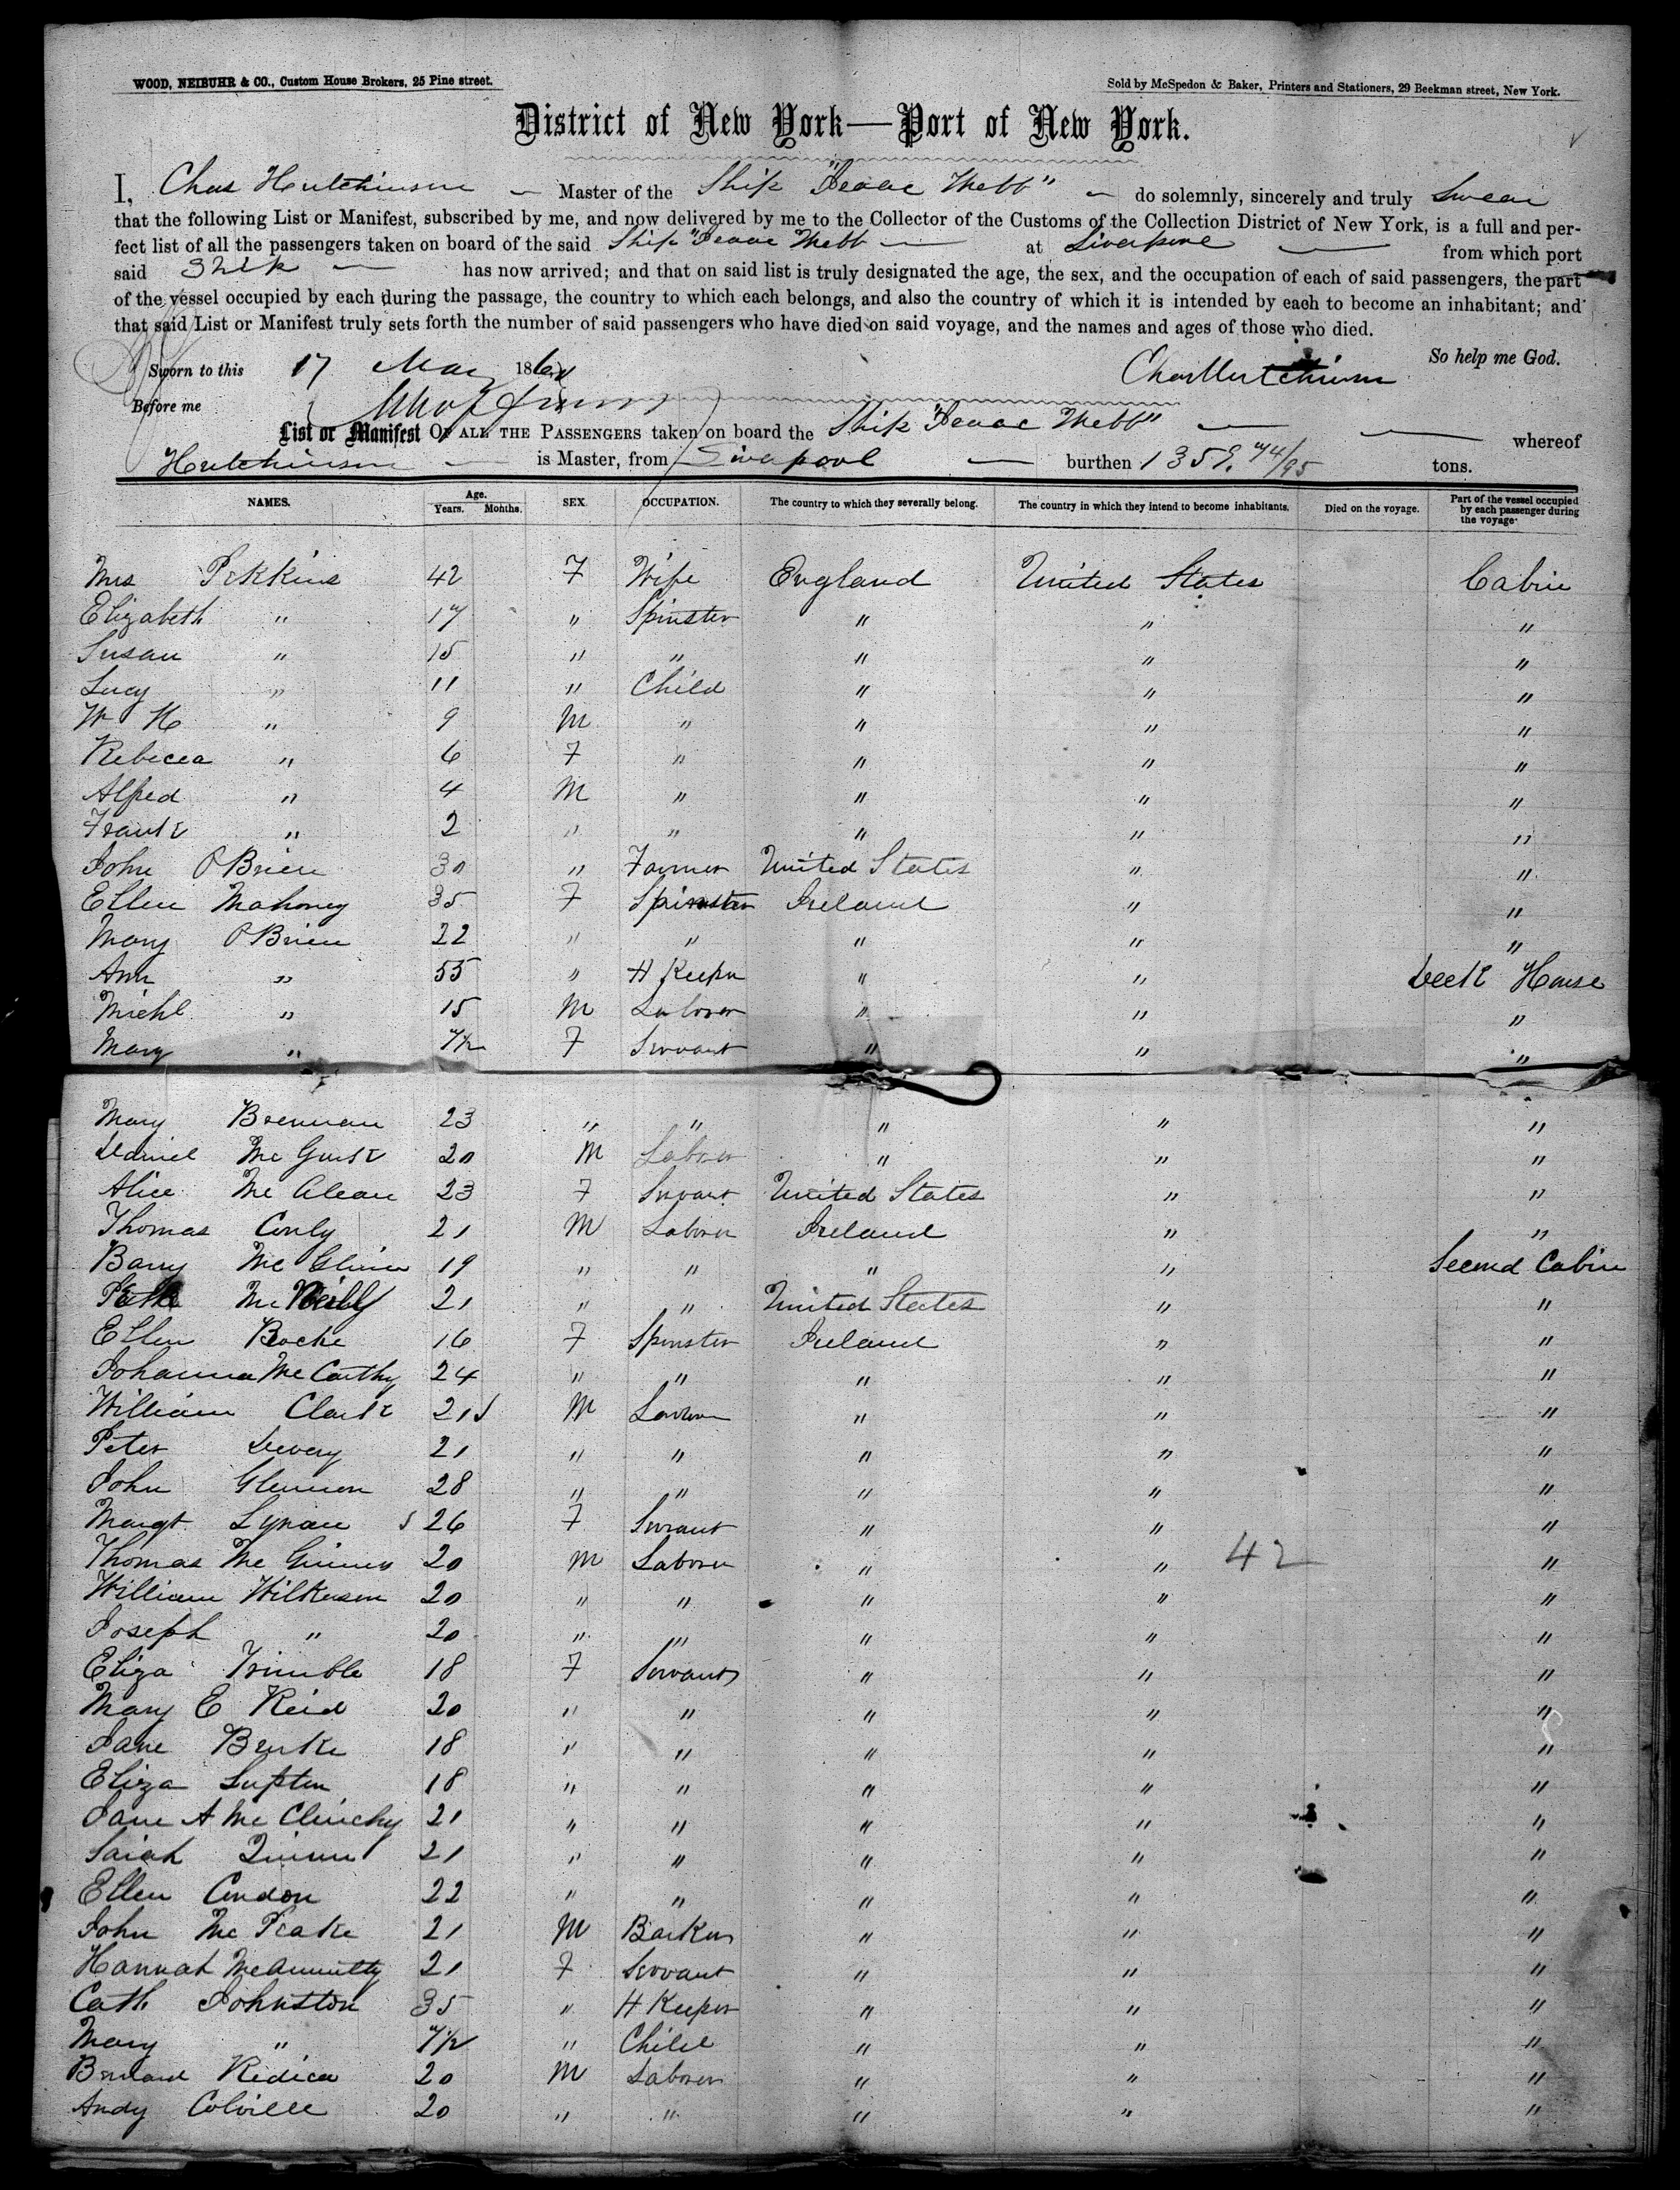 WOOD, NEIBUHR & CO., Custom House Brokers, 25 Pine street.
Sold by McSpedon & Baker, Printers and Stationers, 29 Beekman street, New York.
District of New York—Port of New York.
I, Chas Hutchinson — Master of the Ship "Isaac Webb" — do solemnly, sincerely and truly Swear
that the following List or Manifest, subscribed by me, and now delivered by me to the Collector of the Customs of the Collection District of New York, is a full and per-
fect list of all the passengers taken on board of the said Ship "Isaac Webb — at Liverpool — from which port
said Ship — has now arrived; and that on said list is truly designated the age, the sex, and the occupation of each of said passengers, the part
of the vessel occupied by each during the passage, the country to which each belongs, and also the country of which it is intended by each to become an inhabitant; and
that said List or Manifest truly sets forth the number of said passengers who have died on said voyage, and the names and ages of those who died.
So help me God.
Sworn to this 17 May 186
Chas Hutchinson
Before me
List or Manifest OF ALL THE PASSENGERS taken on board the Ship "Isaac Webb" — whereof
Hutchinson — is Master, from Liverpool — burthen 1359. 74/95 tons.
NAMES. Age. Years. Months. SEX. OCCUPATION. The country to which they severally belong. The country in which they intend to become inhabitants. Died on the voyage. Part of the vessel occupied by each passenger during the voyage.
Mrs Perkins 42 F Wife England United States Cabin
Elizabeth " 17 " Spinster " " "
Susan " 15 " " " " "
Lucy " 11 " Child " " "
W H " 9 M " " " "
Rebecca " 6 F " " " "
Alfred " 4 M " " " "
Frank " 2 " " " " "
John O'Brien 30 " Farmer United States " "
Ellen Mahoney 35 F Spinster Ireland " "
Mary O'Brien 22 " " " " "
Ann " 55 " H Keeper " " Deck House
Michl " 15 M Laborer " " "
Mary " 7½ F Servant " " "
Mary Brennan 23 " " " " "
Daniel McGurk 20 M Laborer " " "
Alice McAlean 23 F Servant United States " "
Thomas Conly 21 M Laborer Ireland " "
Barry 19 " " " " Second Cabin
McNeilly 21 " " United States " "
Ellen Roche 16 F Spinster Ireland " "
Johanna McCarthy 24 " " " " "
William Clark 21 M Laborer " " "
Peter Devery 21 " " " " "
John Glennon 28 " " " " "
Margt Lynan 26 F Servant " " "
Thomas McGinnes 20 M Laborer " " 42 "
William Wilkerson 20 " " " " "
Joseph " 20 " " " " "
Eliza Trimble 18 F Servant " " "
Mary E Reid 20 " " " " "
Jane Burke 18 " " " " "
Eliza Lupton 18 " " " " "
Jane A McClinchy 21 " " " " "
Sarah Quinn 21 " " " " "
Ellen Condon 22 " " " " "
John McPeake 21 M " " "
Hannah McAnnulty 21 F Servant " " "
Cath Johnston 35 " H Keeper " " "
Mary " 7½ " Child " " "
Bernard Ridica 20 M Laborer " " "
Andy Colville 20 " " " " "